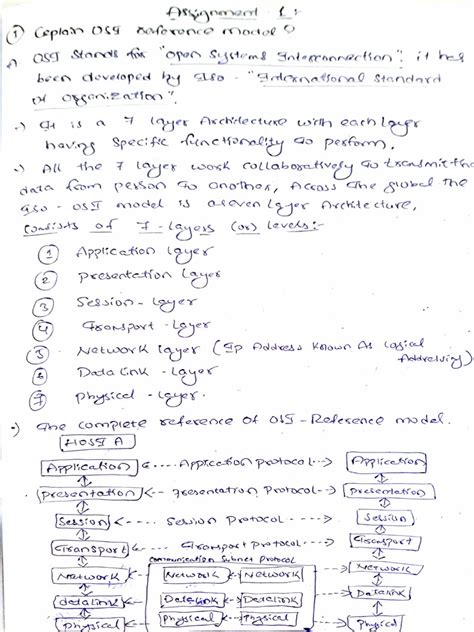 Assignment 1:
① Explain OSI reference model?
OSI stands for "open systems Interconnection". it has
been developed by ISO - "International standard
of organization".
It is a 7 layer Architecture with each layer
having specific functionality to perform.
All the 7 layer work collaboratively to transmit the
data from person to another, Across the global the
ISO - OSI model is a seven layer Architecture,
consists of 7 - layers (or) levels:-
① Application layer
② presentation layer
③ Session - layer
④ Transport - layer
⑤ Network layer (Ip Address known As logical
Addressing)
⑥ Data link - layer
⑦ physical - layer.
The complete reference of OSI - Reference model.
HOST A
Application <---- Application protocol ---> Application
presentation <-- presentation Protocol ---> presentation
Session <--- Session Protocol ----> Session
Transport <--- Transport protocol ---> Transport
communication Subnet Protocol
Network Network Network Network
datalink Datalink Datalink Datalink
physical physical physical